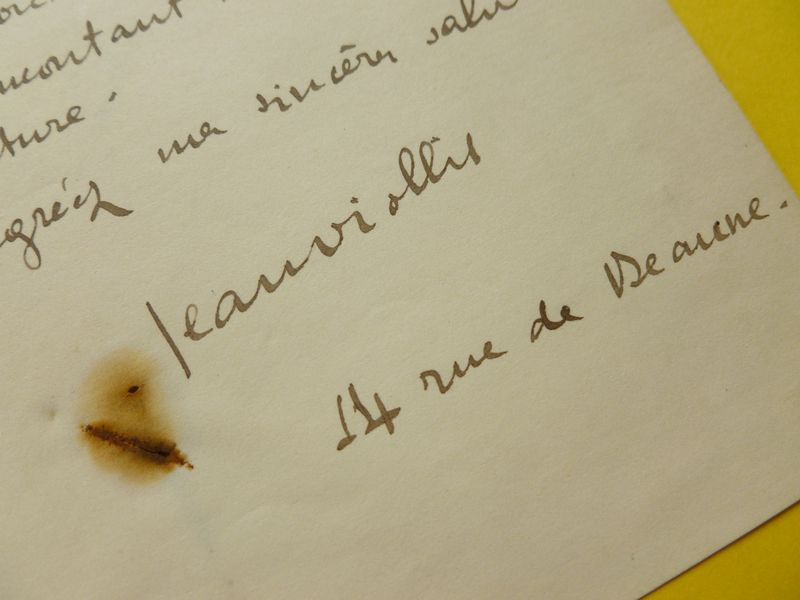 montant
ture.
agréez ma sincère salu
Jean viollis
14 rue de Beaune.